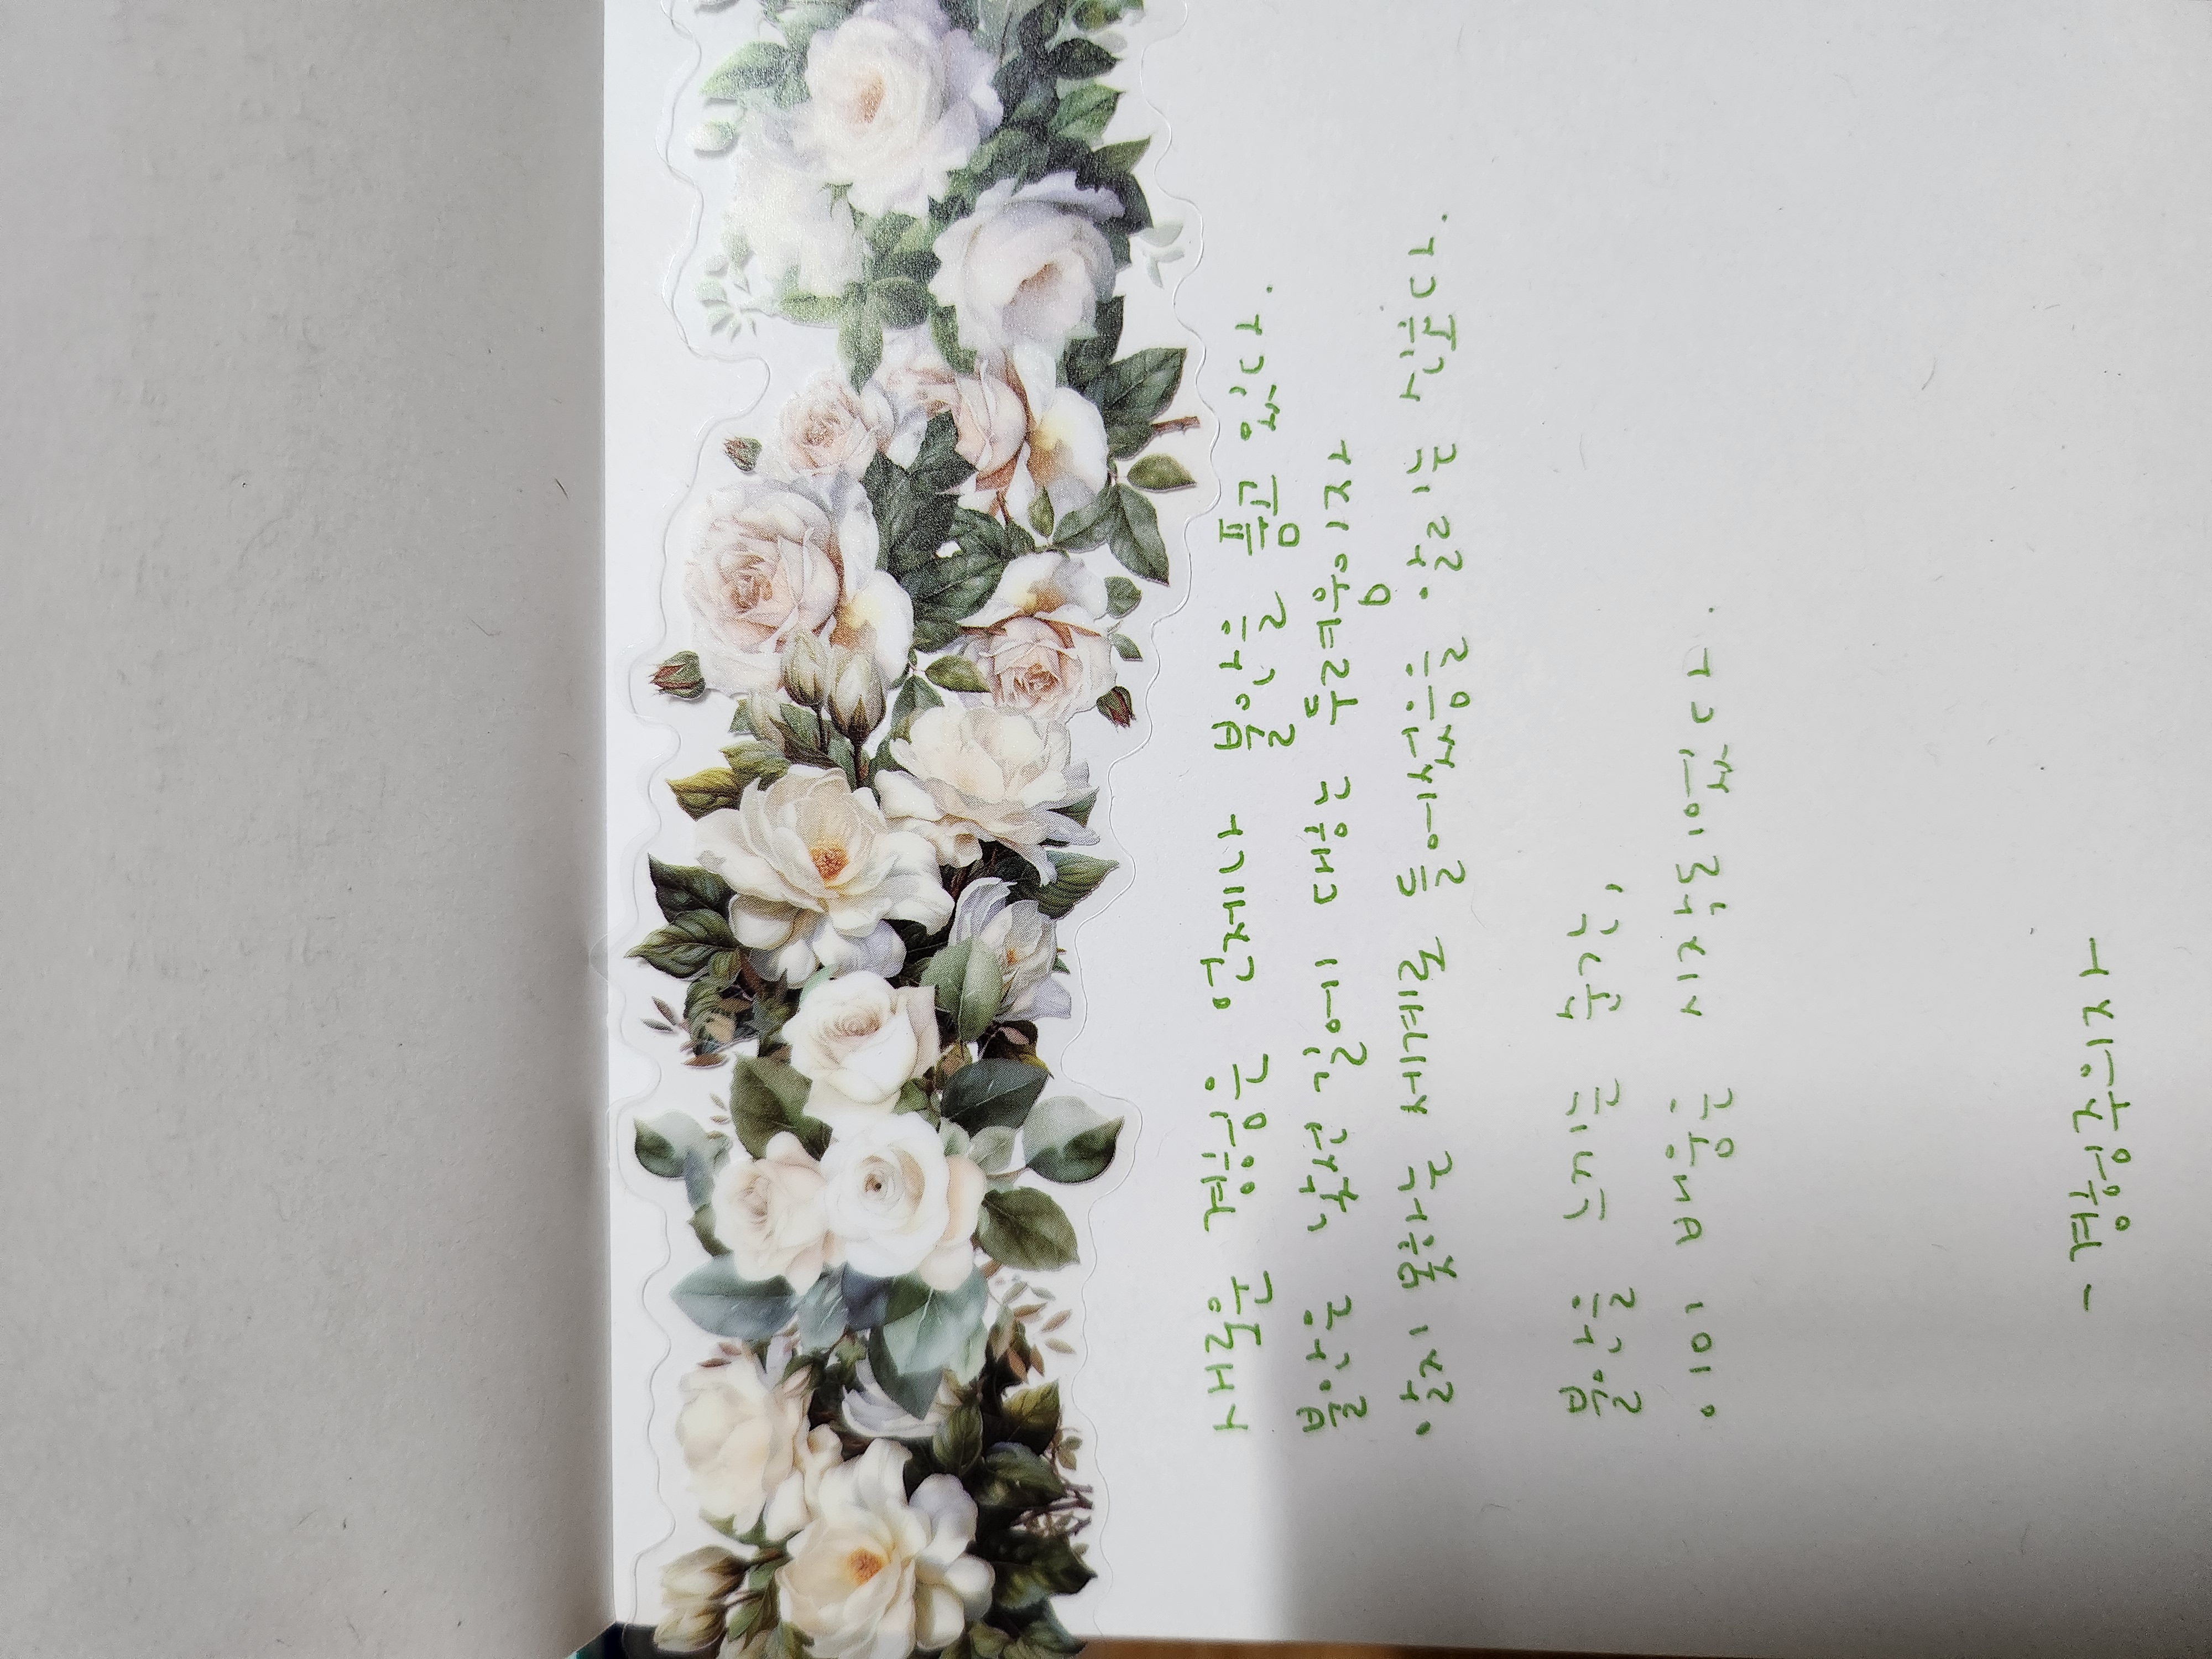 새로운 경험은 언제나 불안을 품고 있다.
불안은 낯선 길에 대한 두려움이자
알지 못하는 세계로 들어섰음을 알리는 신호다.
불안을 느끼는 순간,
이미 배움은 시작되었다.
- 경험주의자